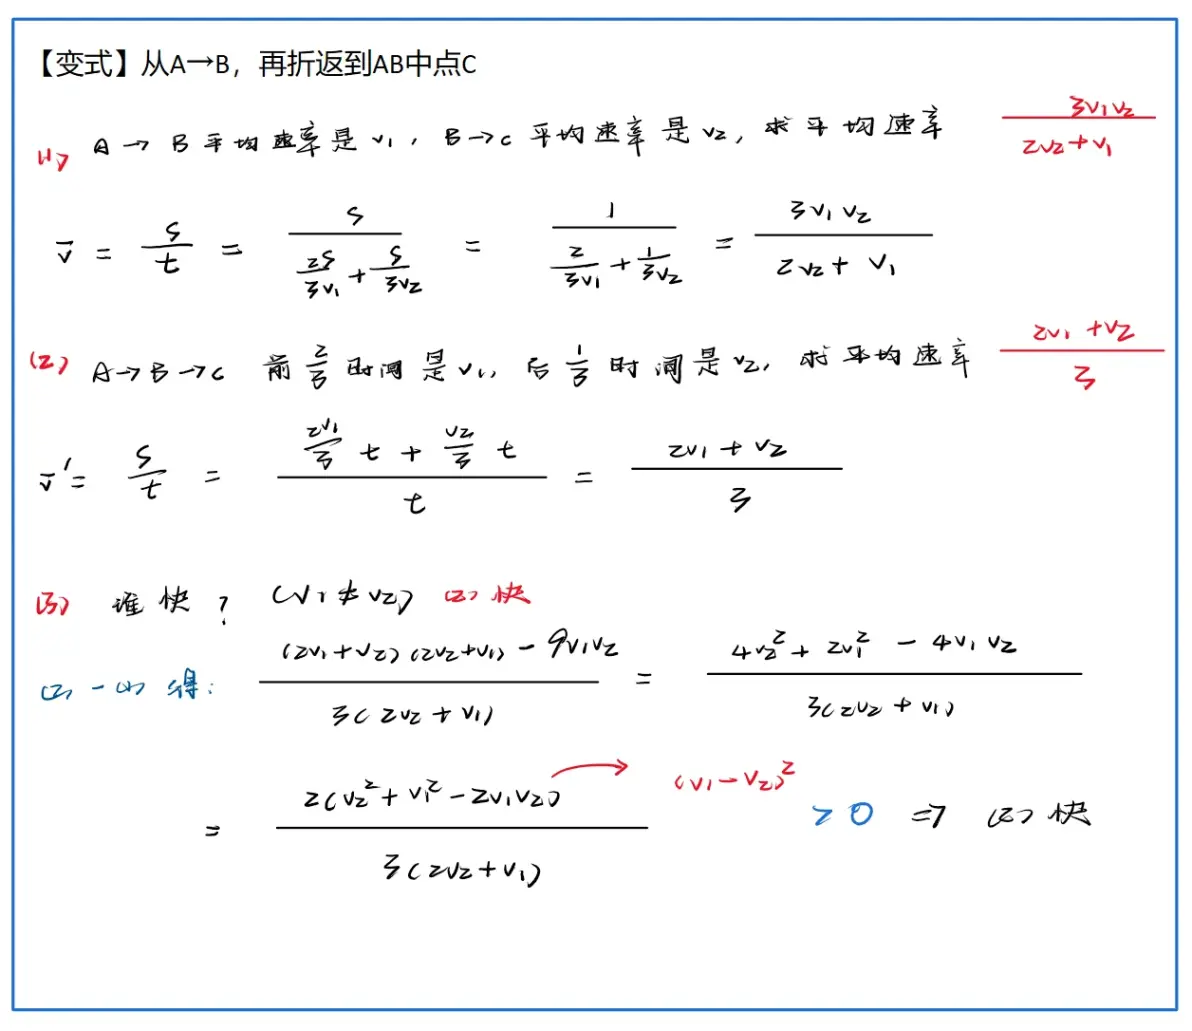 【变式】从A→B，再折返到AB中点C
(1) A→B平均速率是v₁，B→C平均速率是v₂，求平均速率 3v₁v₂/(2v₂+v₁)
v̄ = s/t = s/(2s/3v₁ + s/3v₂) = 1/(2/3v₁ + 1/3v₂) = 3v₁v₂/(2v₂+v₁)
(2) A→B→C 前2/3时间是v₁，后1/3时间是v₂，求平均速率 (2v₁+v₂)/3
v̄' = s/t = (2v₁/3 t + v₂/3 t)/t = (2v₁+v₂)/3
(3) 谁快？ (v₁≠v₂) (2)快
(2)-(1)得： ((2v₁+v₂)(2v₂+v₁) - 9v₁v₂)/(3(2v₂+v₁)) = (4v₂²+2v₁²-4v₁v₂)/(3(2v₂+v₁))
= 2(v₂²+v₁²-2v₁v₂)/(3(2v₂+v₁)) → (v₁-v₂)² >0 ⇒ (2)快